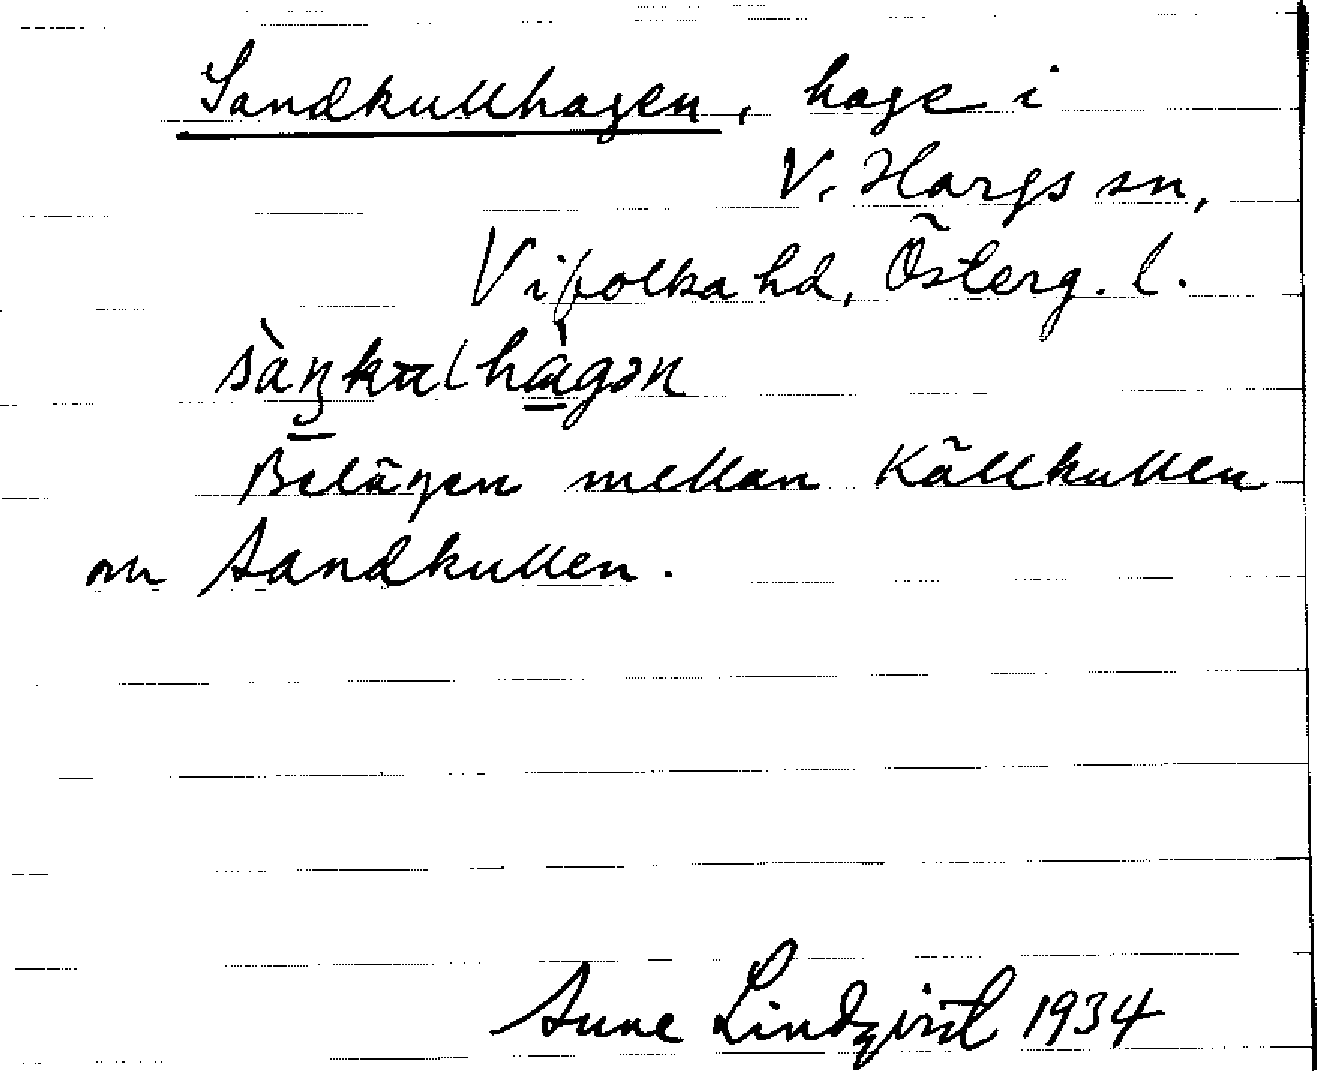 Sandkullhagen, hage i
V. Hargs sn,
Vifolka hd, Österg. l.
Belägen mellan Källkullen
och Sandkullen.
Sune Lindqvist 1934